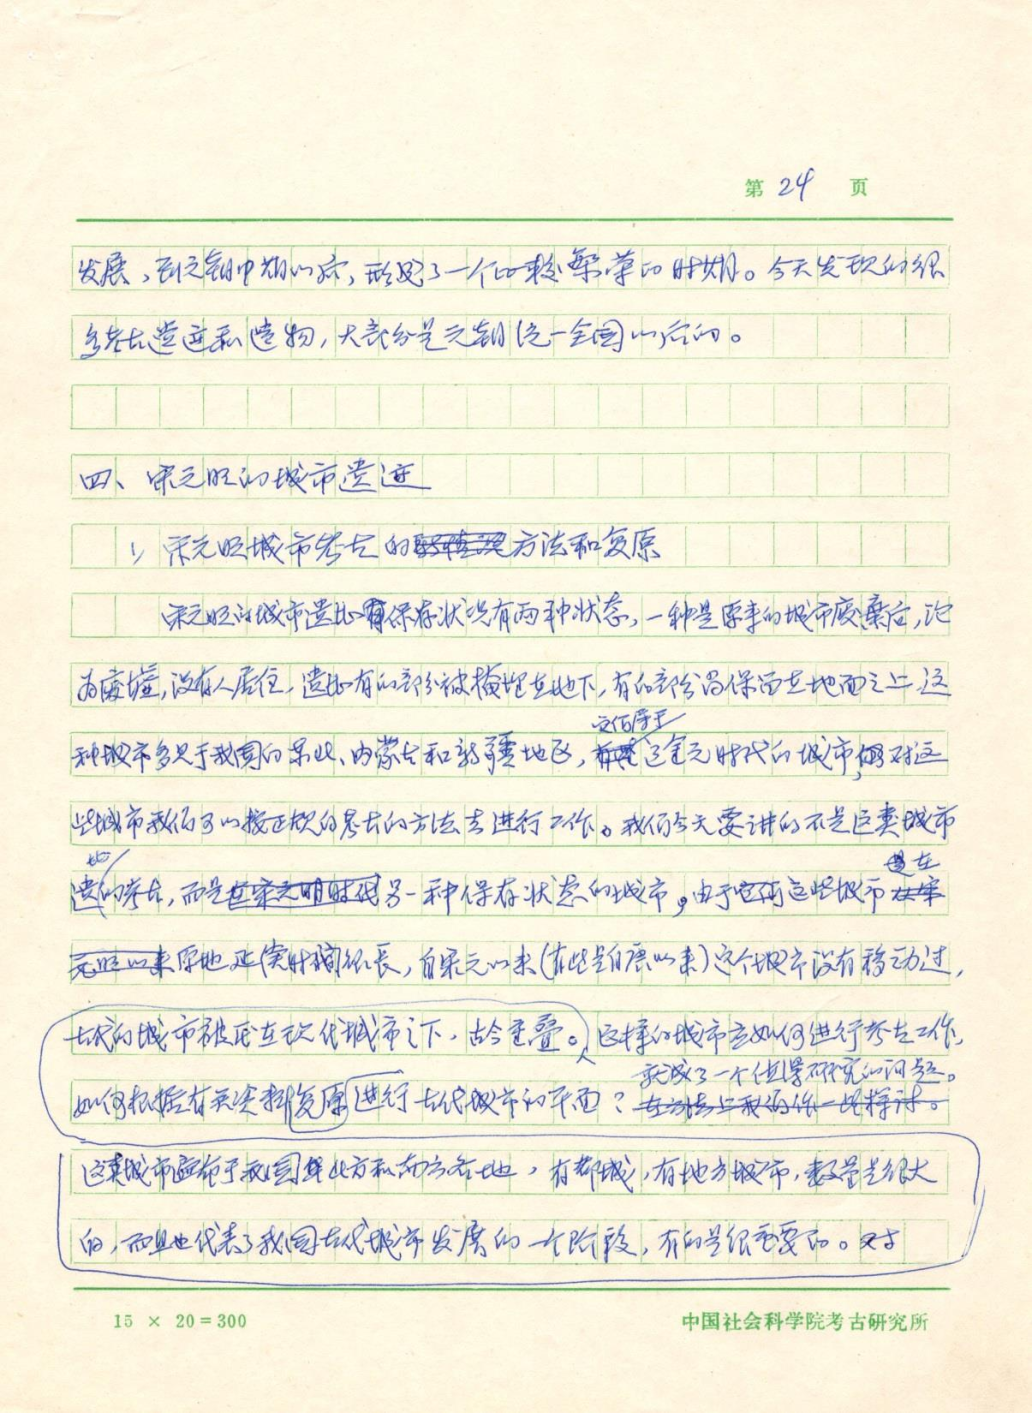 第 24 页
发展，到元朝中期以后，形成了一个比较繁荣的时期。今天发现的很
多考古遗迹和遗物，大部分是元朝统一全国以后的。
四、宋元明的城市遗迹
1) 宋元明城市考古的方法和复原
宋元明的城市遗址保存状况有两种状态，一种是原来的城市废弃后，沦
为废墟，没有人居住，遗址有的部分被掩埋在地下，有的部分尚保留在地面之上，这
种城市多见于我国的东北、内蒙古和新疆地区，它们属于辽金元时代的城市，对这
些城市我们可以按正规的考古的方法去进行工作。我们今天要讲的不是这类城市
遗址的考古，而是在宋元明时代另一种保存状态的城市，由于这些城市是在
元明以来原地延续时间很长，自宋元以来(有些是自唐以来)这个城市没有移动过，
古代的城市被压在现代城市之下，古今重叠。这样的城市应如何进行考古工作，
就成了一个值得研究的问题。
如何根据有关资料复原进行古代城市的平面？在方法上我们作一些探讨。
这类城市遍布于我国北方和南方各地，有都城，有地方城市，数量是很大
的，而且也代表了我国古代城市发展的一个阶段，有的是很重要的。对
15 × 20 = 300
中国社会科学院考古研究所